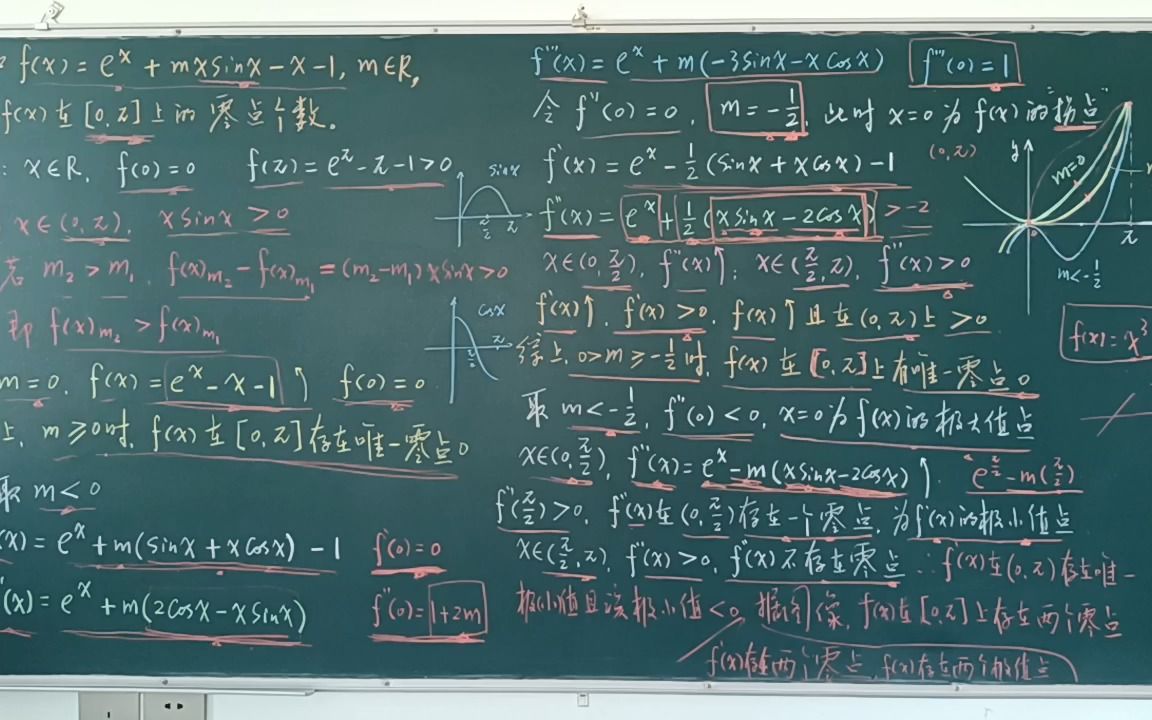 f(x) = e^x + mxsinx - x - 1, m∈R,
f(x)在[0,π]上的零点个数。
: x∈R, f(0)=0 f(π)=e^π-π-1>0
x∈(0,π), xsinx≥0
若 m₂>m₁, f(x)m₂-f(x)m₁=(m₂-m₁)xsinx>0
即 f(x)m₂>f(x)m₁
m=0, f(x)=e^x-x-1↑ f(0)=0
上, m≥0时, f(x)在[0,π]存在唯一零点0
取 m<0
(x)=e^x+m(sinx+xcosx)-1 f'(0)=0
(x)=e^x+m(2cosx-xsinx) f''(0)=1+2m
sinx
π/2 π
cosx
π/2 π
f'''(x)=e^x+m(-3sinx-xcosx) f'''(0)=1
令 f''(0)=0, m=-1/2, 此时 x=0为f(x)的"拐点"
f'(x)=e^x-1/2(sinx+xcosx)-1 (0,π)
f''(x)=e^x+1/2(xsinx-2cosx)>-2
x∈(0,π/2), f''(x)↑; x∈(π/2,π), f''(x)>0
f'(x)↑, f'(x)>0, f(x)↑且在(0,π)上>0
综上, 0>m≥-1/2时, f(x)在[0,π]上有唯一零点0
取 m<-1/2, f''(0)<0, x=0为f(x)的极大值点
x∈(0,π/2), f''(x)=e^x-m(xsinx-2cosx)↑ e^(π/2)-m(π/2)
f''(π/2)>0, f''(x)在(0,π/2)存在一个零点, 为f'(x)的极小值点
x∈(π/2,π), f''(x)>0, f''(x)不存在零点 ∴f'(x)在(0,π)存在唯一
极小值且该极小值<0, 据图像, f(x)在[0,π]上存在两个零点
f(x)存在两个零点, f(x)存在两个极值点
y
m=0
π
m<-1/2
f(x)=x³